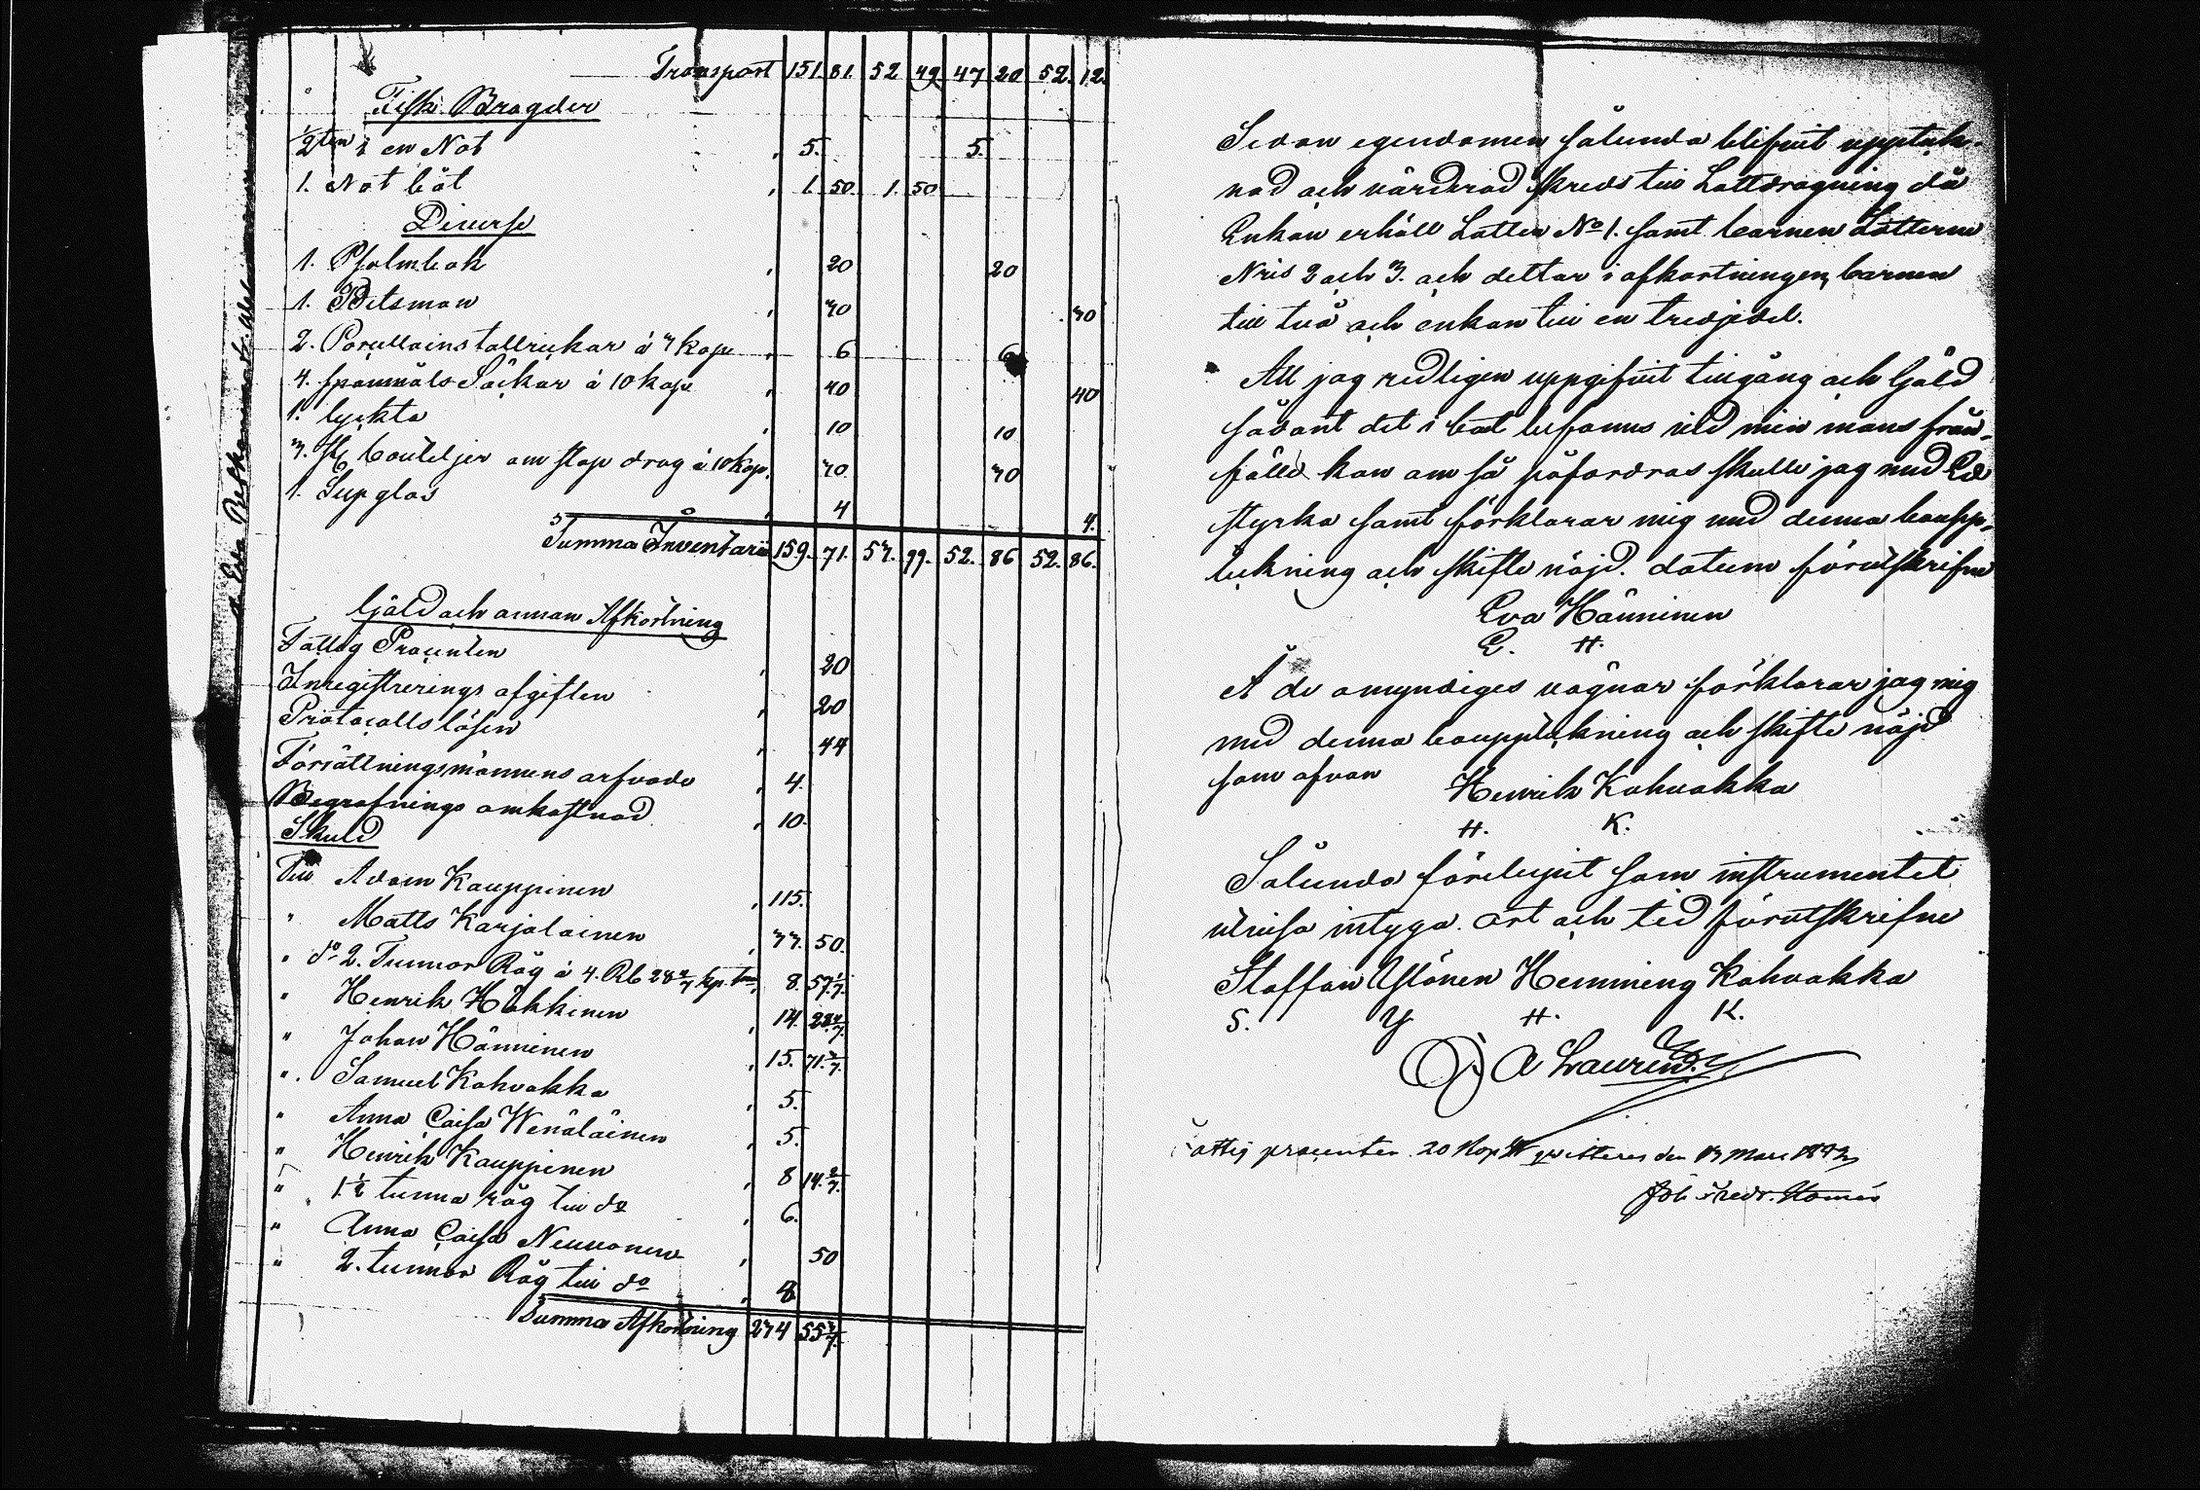 Transport 151. 81. 52 49 47 20 52. 12.
Fisk Bragder
1/2ten i en Not 5. 5.
1. Not båt 1. 50. 1. 50
Diverse
1. Psalmbok 20 20
1. Betsman 30 30
2. Porcellains tallrickar à 3 kop 6 6
4. spannmåls Säckar à 10 kop 40 40
1. lyckta 10 10
3. st bouteljer om stop drag à 10 kop. 30. 30
1. Supglas 4 4.
Summa Inventarii 159. 71. 53. 99. 52. 86 52. 86.
Gäld och annan Afkortning
Fattig Procenten 20
Inregistrerings afgiften 20
Protocolls lösen 44
Förrättningsmännens arfvode 4.
Begrafnings omkostnad 10.
Skuld
Till Adam Kauppinen 115.
" Matts Karjalainen 77. 50.
" do 2. Tunnor Råg à 4. Rb 28 4/7 kp. tun 8. 57 1/7.
" Henrik Hakkinen 14. 28 4/7.
" Johan Hänninen 15. 71 3/7.
" Samuel Kohvakka 5.
" Anna Caisa Wenäläinen 5.
" Henrik Kauppinen 8 14 2/7.
" 1 1/2 tunna råg till do 6.
" Anna Caisa Neuvonen 50
" 2. tunnor Råg till do 8
Summa Afkortning 274 55 3/7.
Sedan egendomen sålunda blifvit uppteck-
nad och värderad skreds till Lottdragning då
Enkan erhöll Lotten No 1. samt barnen Lotterne
Nris 2 och 3. och deltar i afkortningen, barnen
till två och enkan till en tredjedel.
Att jag redligen uppgifvit tillgång och Gäld
sådant det i boet befanns vid min mans från-
fälle kan om så påfordras skulle jag med Ed
styrka samt förklarar mig med denna boupp-
teckning och skifte nöjd. datum förutskrifne
Eva Hänninen
E. H.
Å de omyndiges vägnar förklarar jag mig
med denna bouppteckning och skifte nöjd
som ofvan Henrik Kohvakka
H. K.
Sålunda förelupit som instrumentet
utvisa intyga. ort och tid förutskrifne
Staffan Ylönen Hemming Kohvakka
S. Y H. K.
A Lauren
Fattig procenten 20 Kop Sr qvitteras den 13 Mars 1843
Joh Fredr.